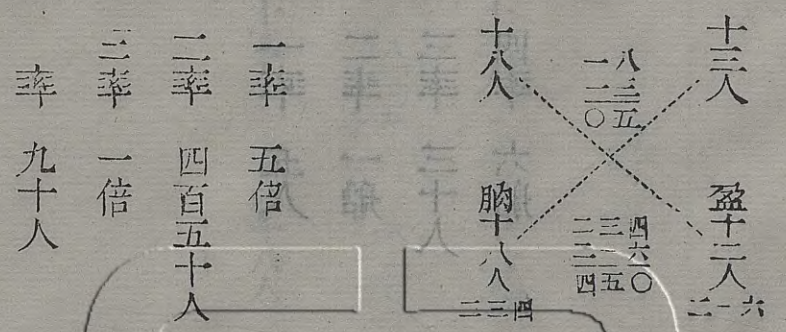 十三人 盈十二人 二一六
一八
一三
〇五
二三四
二一六
四五〇
十八人 朒十八人 二三四
一率 五倍
二率 四百五十人
三率 一倍
率 九十人